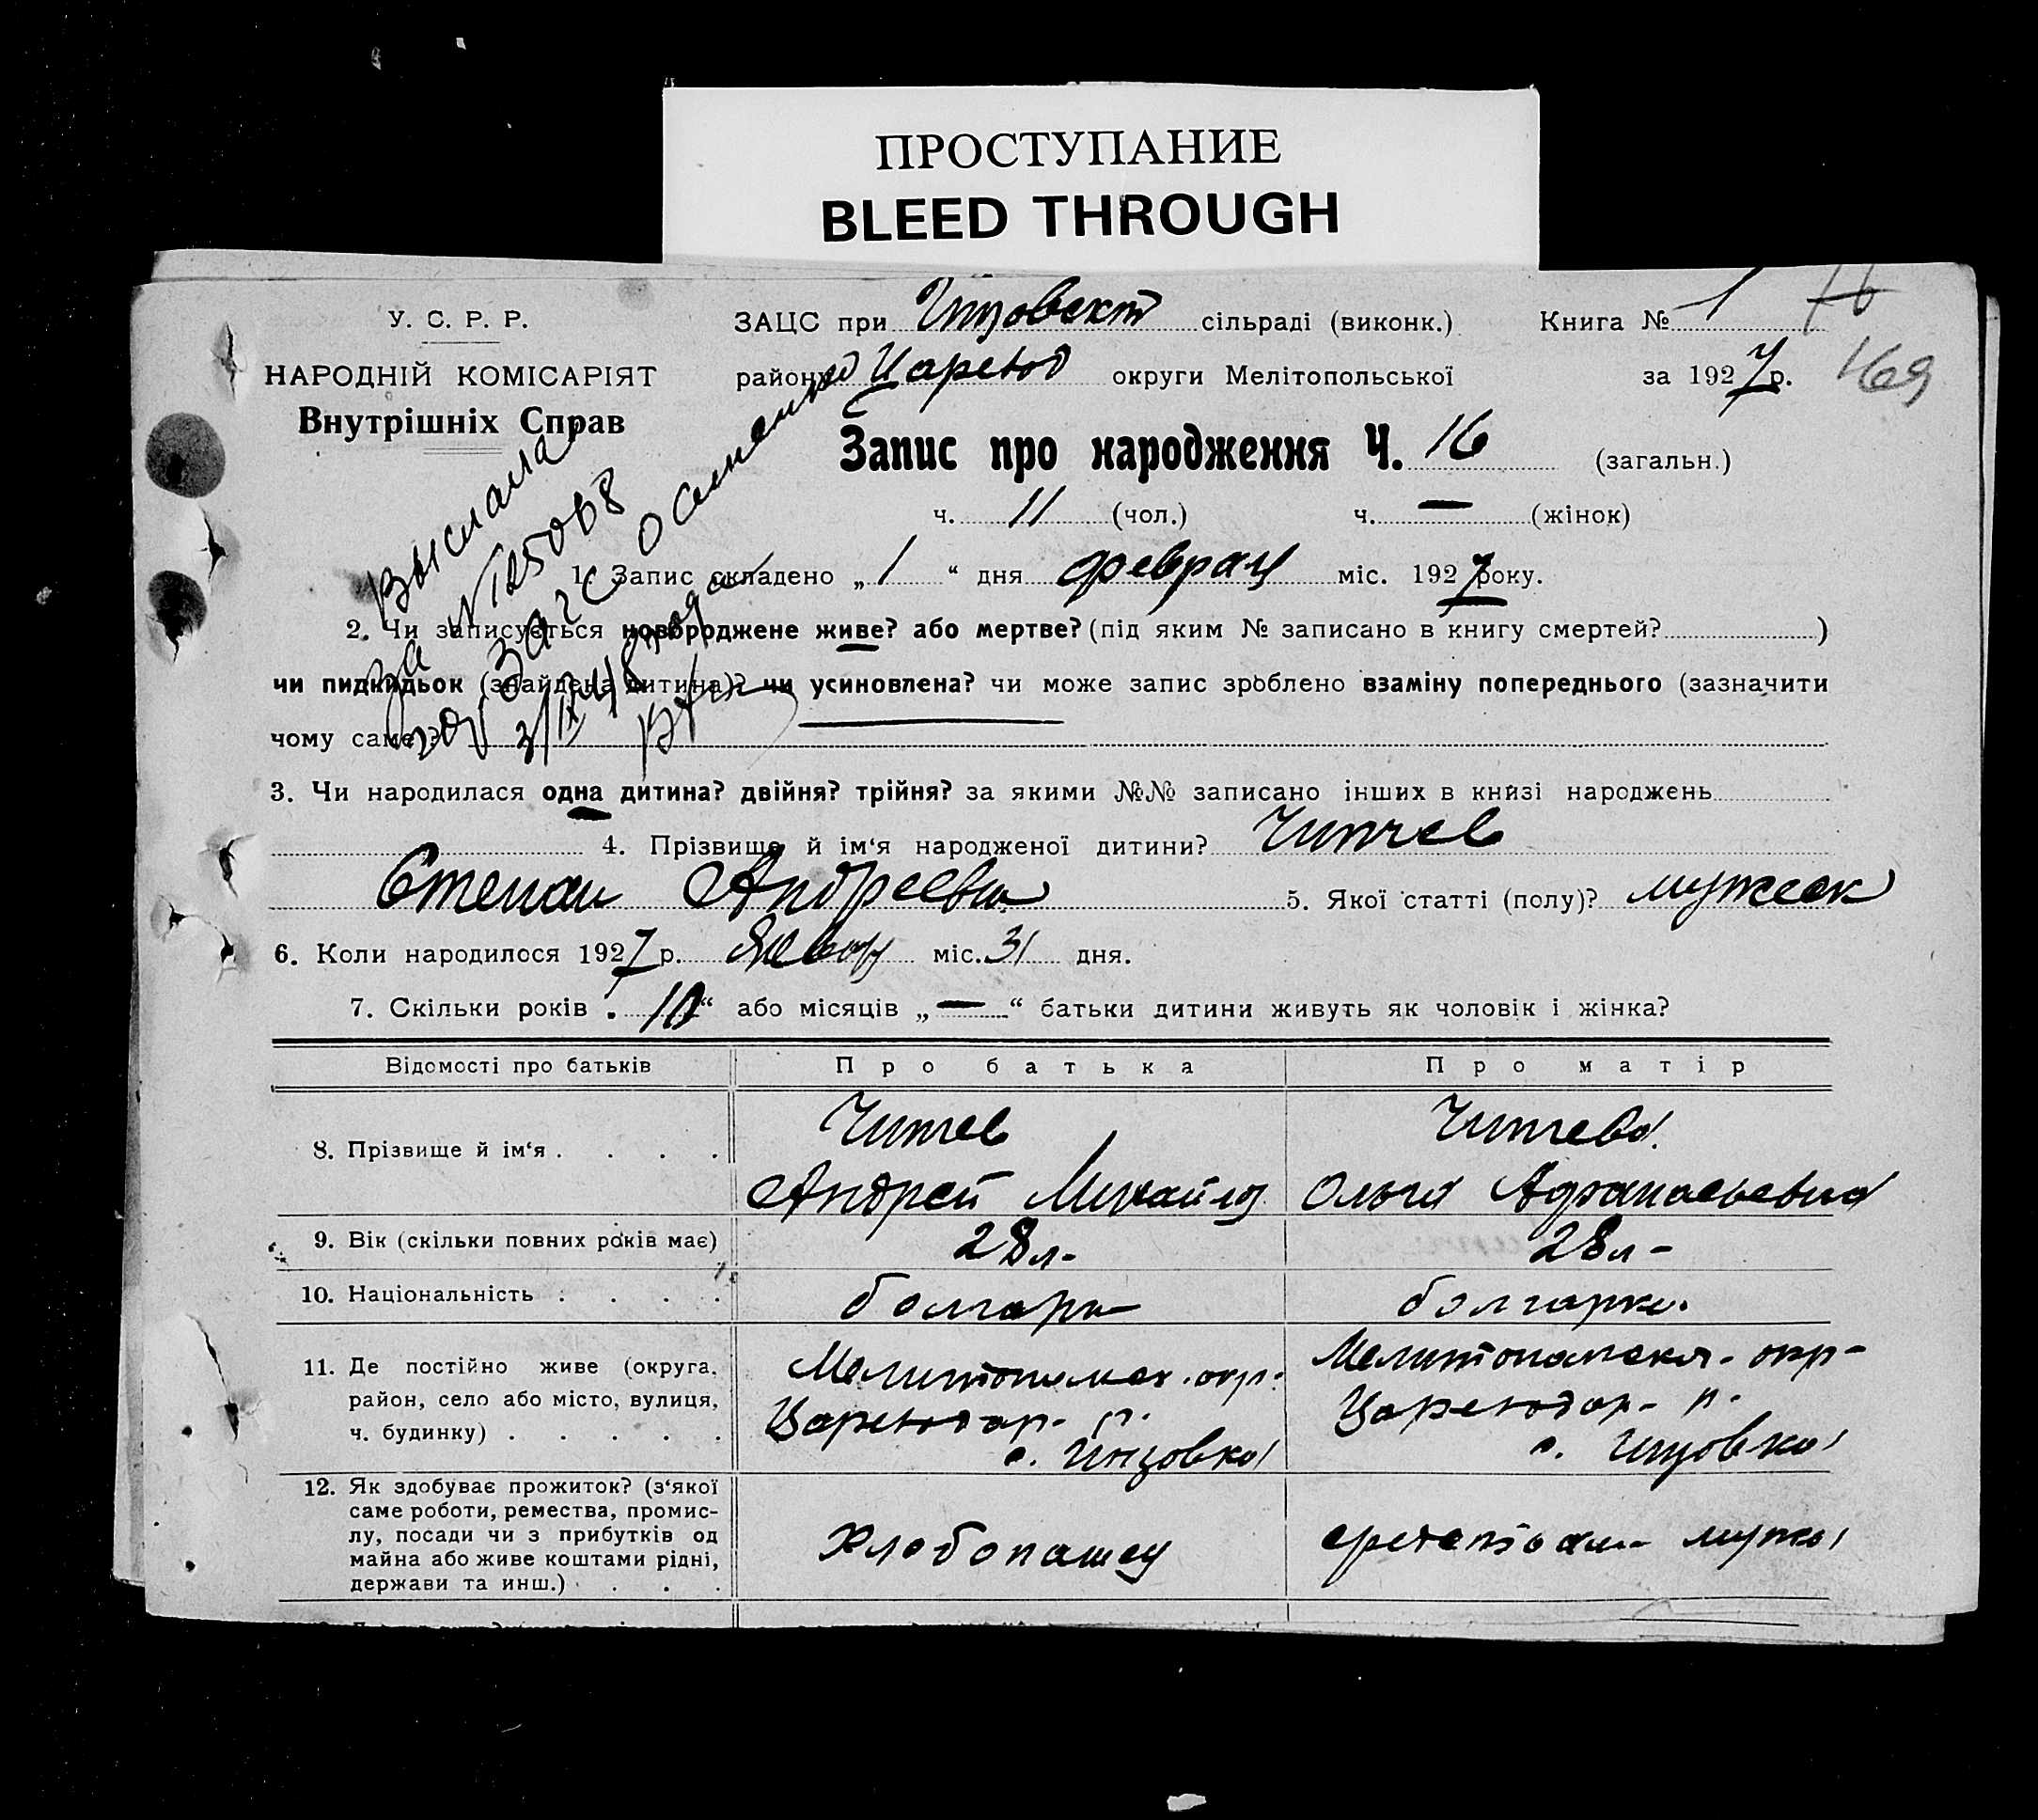 ПРОСТУПАНИЕ
BLEED THROUGH
У. С. Р. Р.
НАРОДНІЙ КОМІСАРІЯТ
Внутрішніх Справ
ЗАЦС при Гюновской сільраді (виконк.)
району Царевод округи Мелітопольської
Книга № 1
за 1927 р.
169
Запис про народження Ч. 16 (загальн.)
ч. 11 (чол.) ч. — (жінок)
Выслала
за №125068
ЗАГС Осипенко
1. Запис складено „1“ дня февраля міс. 1927 року.
2. Чи записується новороджене живе? або мертве? (під яким № записано в книгу смертей? )
чи пидкидьок (знайдена дитина)? чи усиновлена? чи може запис зроблено взаміну попереднього (зазначити
чому саме)?
3. Чи народилася одна дитина? двійня? трійня? за якими №№ записано інших в книзі народжень
4. Прізвище й ім‘я народженої дитини? Чипчев
Степан Андреевич 5. Якої статті (полу)? мужеск
6. Коли народилося 1927 р. Январ міс. 31 дня.
7. Скільки років „10“ або місяців „—“ батьки дитини живуть як чоловік і жінка?
Відомості про батьків Про батька Про матір
8. Прізвище й ім‘я . . . . Чипчев Чипчева
Андрей Михайлов Ольга Афанасьевна
9. Вік (скільки повних років має) 28 л- 28 л-
10. Національність . . . . болгарин болгарка.
11. Де постійно живе (округа,
район, село або місто, вулиця,
ч. будинку) . . . . .
Мелитопольск. окр.
Цареводар- р.
с. Инзовка
Мелитопольская. окр-
Цареводар- р.
с. Инзовка
12. Як здобуває прожиток? (з‘якої
саме роботи, ремества, промис-
лу, посади чи з прибутків од
майна або живе коштами рідні,
держави та инш.) . . .
Хлебопашец
средствами мужа